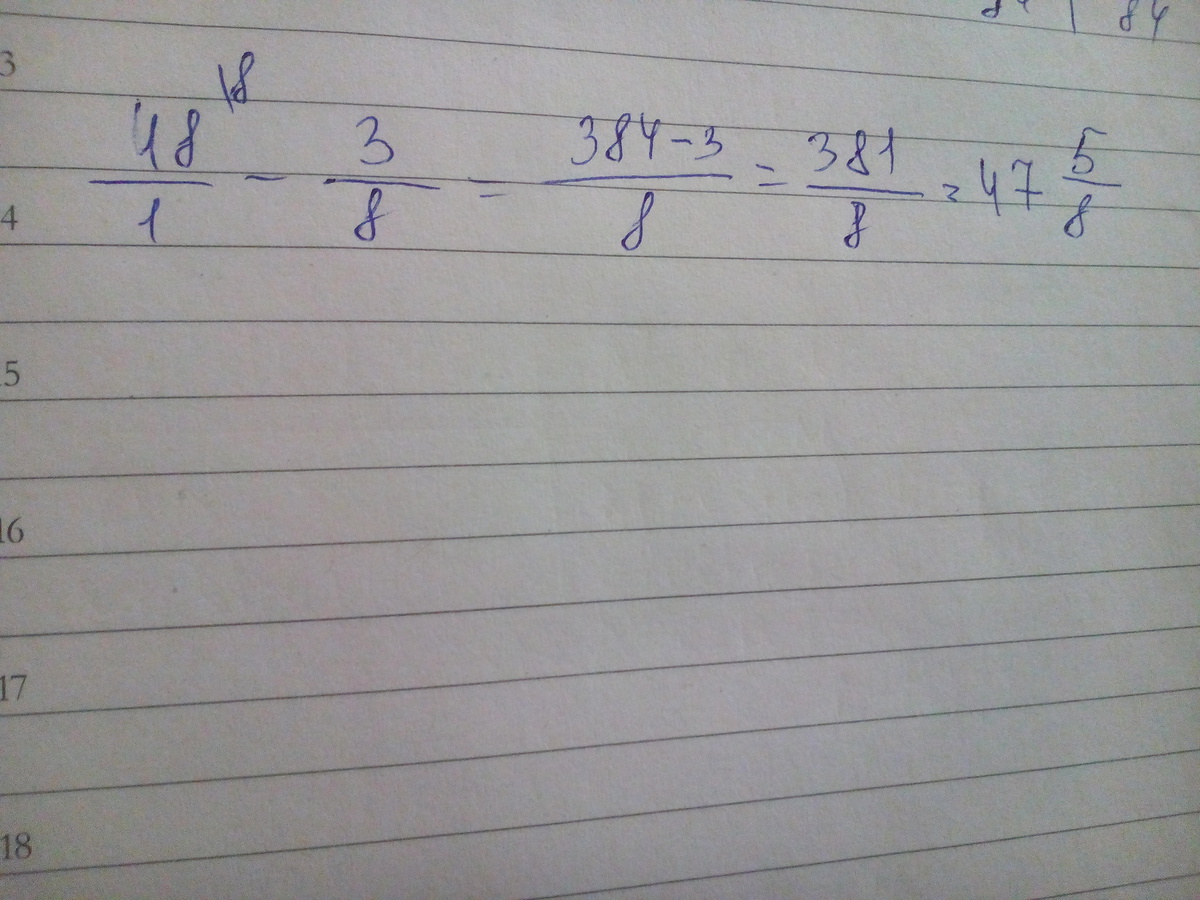 84 | 84
3
48\8/1 - 3/8 = 384-3/8 = 381/8 = 47 5/8
4
15
16
17
18